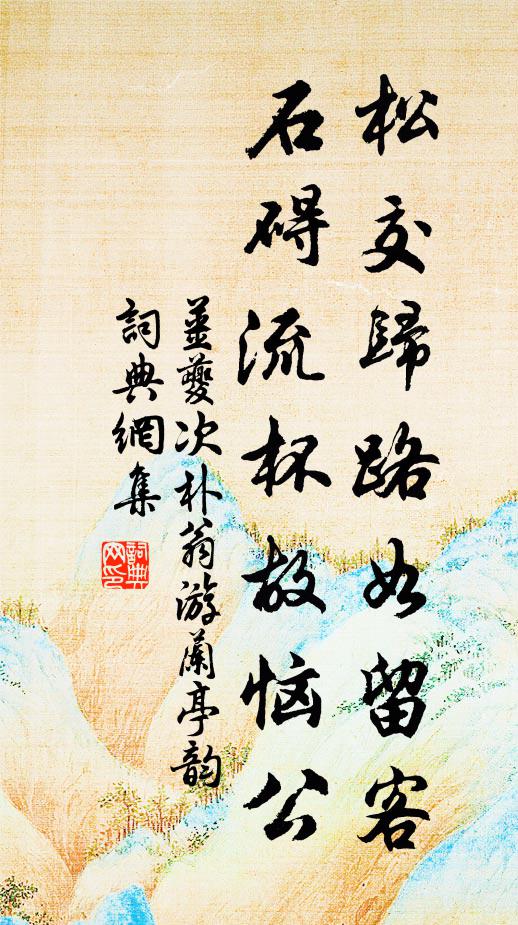 松交歸路如留客
石碍流杯故恼公
姜夔次朴翁游蘭亭韵
詞典網集
詞典网印